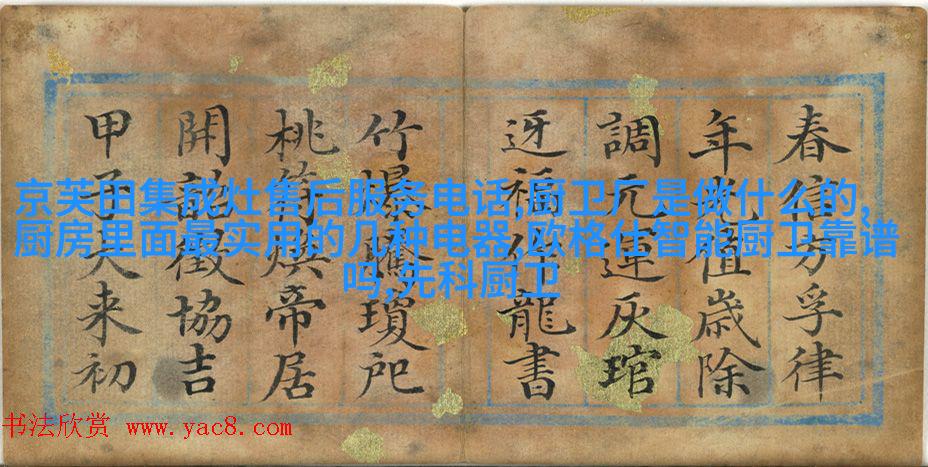 春信方孚律
年光值歲除
調元灰琯
迓福龍書
竹爆騰瓊
桃符煥帝居
開韶徵協吉
甲子來初
京芙田集成灶售后服务电话,厨卫厂是做什么的,
厨房里面最实用的几种电器,欧格仕智能厨卫靠谱
吗,先科厨卫
书法欣赏 www.yac8.com